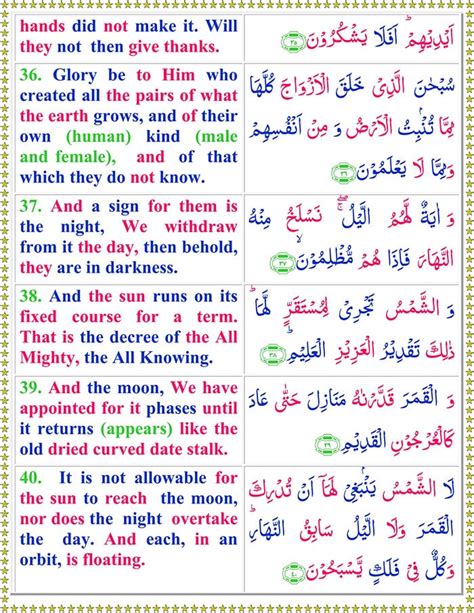 hands did not make it. Will
they not then give thanks.
اَيْدِيْهِمْ ؕ اَفَلَا يَشْكُرُوْنَ ﴿۳۵﴾
36. Glory be to Him who
created all the pairs of what
the earth grows, and of their
own (human) kind (male
and female), and of that
which they do not know.
سُبْحٰنَ الَّذِيْ خَلَقَ الْاَزْوَاجَ كُلَّهَا
مِمَّا تُنْۢبِتُ الْاَرْضُ وَ مِنْ اَنْفُسِهِمْ
وَمِمَّا لَا يَعْلَمُوْنَ ﴿۳۶﴾
37. And a sign for them is
the night, We withdraw
from it the day, then behold,
they are in darkness.
وَ اٰيَةٌ لَّهُمُ الَّيْلُ ۖۚ نَسْلَخُ مِنْهُ
النَّهَارَ فَاِذَا هُمْ مُّظْلِمُوْنَ ۙ﴿۳۷﴾
38. And the sun runs on its
fixed course for a term.
That is the decree of the All
Mighty, the All Knowing.
وَ الشَّمْسُ تَجْرِيْ لِمُسْتَقَرٍّ لَّهَا ؕ
ذٰلِكَ تَقْدِيْرُ الْعَزِيْزِ الْعَلِيْمِ ؕ﴿۳۸﴾
39. And the moon, We have
appointed for it phases until
it returns (appears) like the
old dried curved date stalk.
وَ الْقَمَرَ قَدَّرْنٰهُ مَنَازِلَ حَتّٰى عَادَ
كَالْعُرْجُوْنِ الْقَدِيْمِ ﴿۳۹﴾
40. It is not allowable for
the sun to reach the moon,
nor does the night overtake
the day. And each, in an
orbit, is floating.
لَا الشَّمْسُ يَنْۢبَغِيْ لَهَاۤ اَنْ تُدْرِكَ
الْقَمَرَ وَلَا الَّيْلُ سَابِقُ النَّهَارِ ؕ
وَكُلٌّ فِيْ فَلَكٍ يَّسْبَحُوْنَ ﴿۴۰﴾